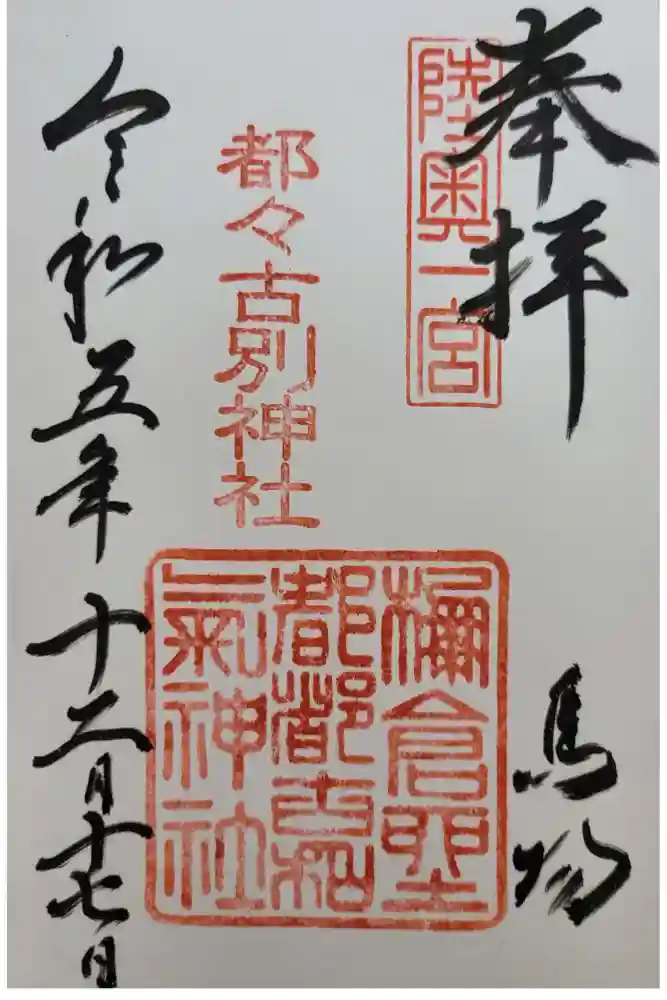 奉拝
陸奥一宮
馬場
都々古別神社
檷倉
都都古和
氣神社
令和五年十二月十七日